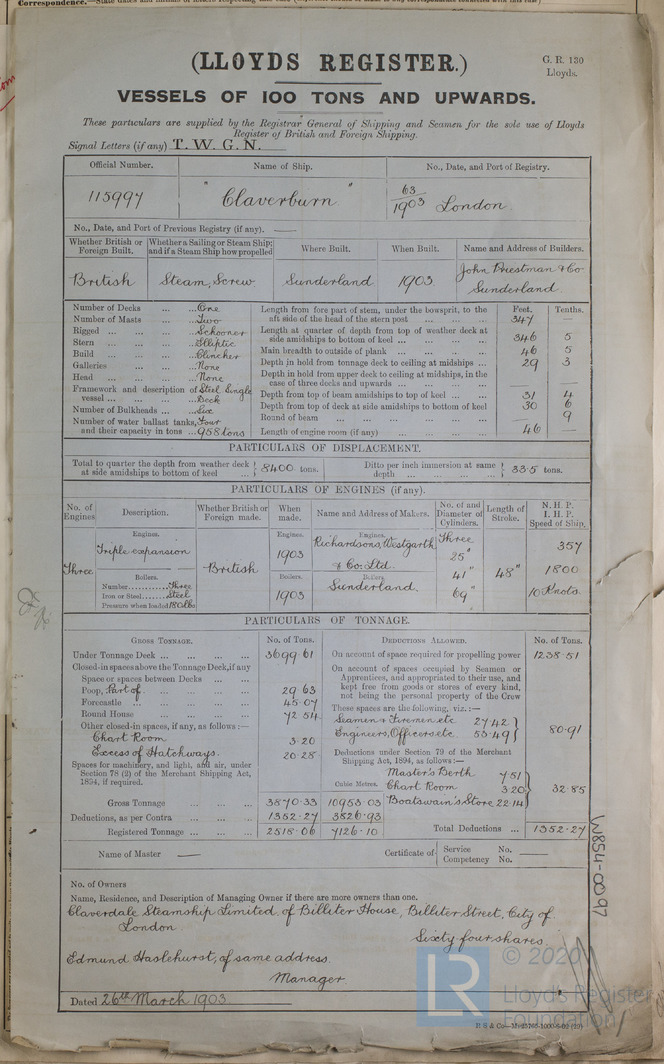 Correspondence.
(LLOYDS REGISTER.)
G. R. 130
Lloyds.
VESSELS OF 100 TONS AND UPWARDS.
These particulars are supplied by the Registrar General of Shipping and Seamen for the sole use of Lloyds
Register of British and Foreign Shipping.
Signal Letters (if any) T. W. G. N.
Official Number. Name of Ship. No., Date, and Port of Registry.
115997 "Claverburn" 63/1903 London
No., Date, and Port of Previous Registry (if any). —
Whether British or Foreign Built. Whether a Sailing or Steam Ship; and if a Steam Ship how propelled Where Built. When Built. Name and Address of Builders.
British Steam, Screw Sunderland 1903 John Priestman & Co Sunderland
Number of Decks ... One
Number of Masts ... Two
Rigged ... Schooner
Stern ... Elliptic
Build ... Clincher
Galleries ... None
Head ... None
Framework and description of vessel ... Steel Single Deck
Number of Bulkheads ... Six
Number of water ballast tanks, and their capacity in tons ... Four 958 tons
Feet. Tenths.
Length from fore part of stem, under the bowsprit, to the aft side of the head of the stern post ... 347 —
Length at quarter of depth from top of weather deck at side amidships to bottom of keel ... 346 5
Main breadth to outside of plank ... 46 5
Depth in hold from tonnage deck to ceiling at midships ... 29 3
Depth in hold from upper deck to ceiling at midships, in the case of three decks and upwards ... — —
Depth from top of beam amidships to top of keel ... 31 4
Depth from top of deck at side amidships to bottom of keel 30 6
Round of beam ... — 9
Length of engine room (if any) ... 46 —
PARTICULARS OF DISPLACEMENT.
Total to quarter the depth from weather deck at side amidships to bottom of keel ... 8400 tons. Ditto per inch immersion at same depth ... 33.5 tons.
PARTICULARS OF ENGINES (if any).
No. of Engines. Description. Whether British or Foreign made. When made. Name and Address of Makers. No. of and Diameter of Cylinders. Length of Stroke. N. H. P. I. H. P. Speed of Ship.
Engines. Engines. Engines.
Three Triple expansion British 1903 Richardsons, Westgarth & Co. Ltd. Three 25" 41" 69" 48" 357 1800 10 Knots
Boilers. Boilers. Boilers.
Number ... Three
Iron or Steel ... Steel
Pressure when loaded 180 lbs
1903 Sunderland.
PARTICULARS OF TONNAGE.
GROSS TONNAGE. No. of Tons. DEDUCTIONS ALLOWED. No. of Tons.
Under Tonnage Deck ... 3699 61
Closed-in spaces above the Tonnage Deck, if any
Space or spaces between Decks ...
Poop, Part of ... 29 63
Forecastle ... 45.07
Round House ... 72 54
Other closed-in spaces, if any, as follows:—
Chart Room 3.20
Excess of Hatchways. 20.28
Spaces for machinery, and light, and air, under Section 78 (2) of the Merchant Shipping Act, 1894, if required.
Cubic Metres.
Gross Tonnage ... 3870.33 10953 03
Deductions, as per Contra ... 1352.27 3826.93
Registered Tonnage ... 2518.06 7126.10
On account of space required for propelling power 1238.51
On account of spaces occupied by Seamen or Apprentices, and appropriated to their use, and kept free from goods or stores of every kind, not being the personal property of the Crew
These spaces are the following, viz.:—
Seamen & Firemen etc 27 42
Engineers, Officers etc. 53.49 80.91
Deductions under Section 79 of the Merchant Shipping Act, 1894, as follows:—
Master's Berth 7.51
Chart Room 3.20 32.85
Boatswain's Store 22.14
Total Deductions ... 1352.27
Name of Master — Certificate of Service No. Competency No. —
No. of Owners
Name, Residence, and Description of Managing Owner if there are more owners than one.
Claverdale Steamship Limited of Billiter House, Billiter Street, City of
London
Sixty four shares.
Edmund Haslehurst, of same address
Manager.
Dated 26th March 1903
W854-0097
LR
© 2020
Lloyd's Register
Foundation